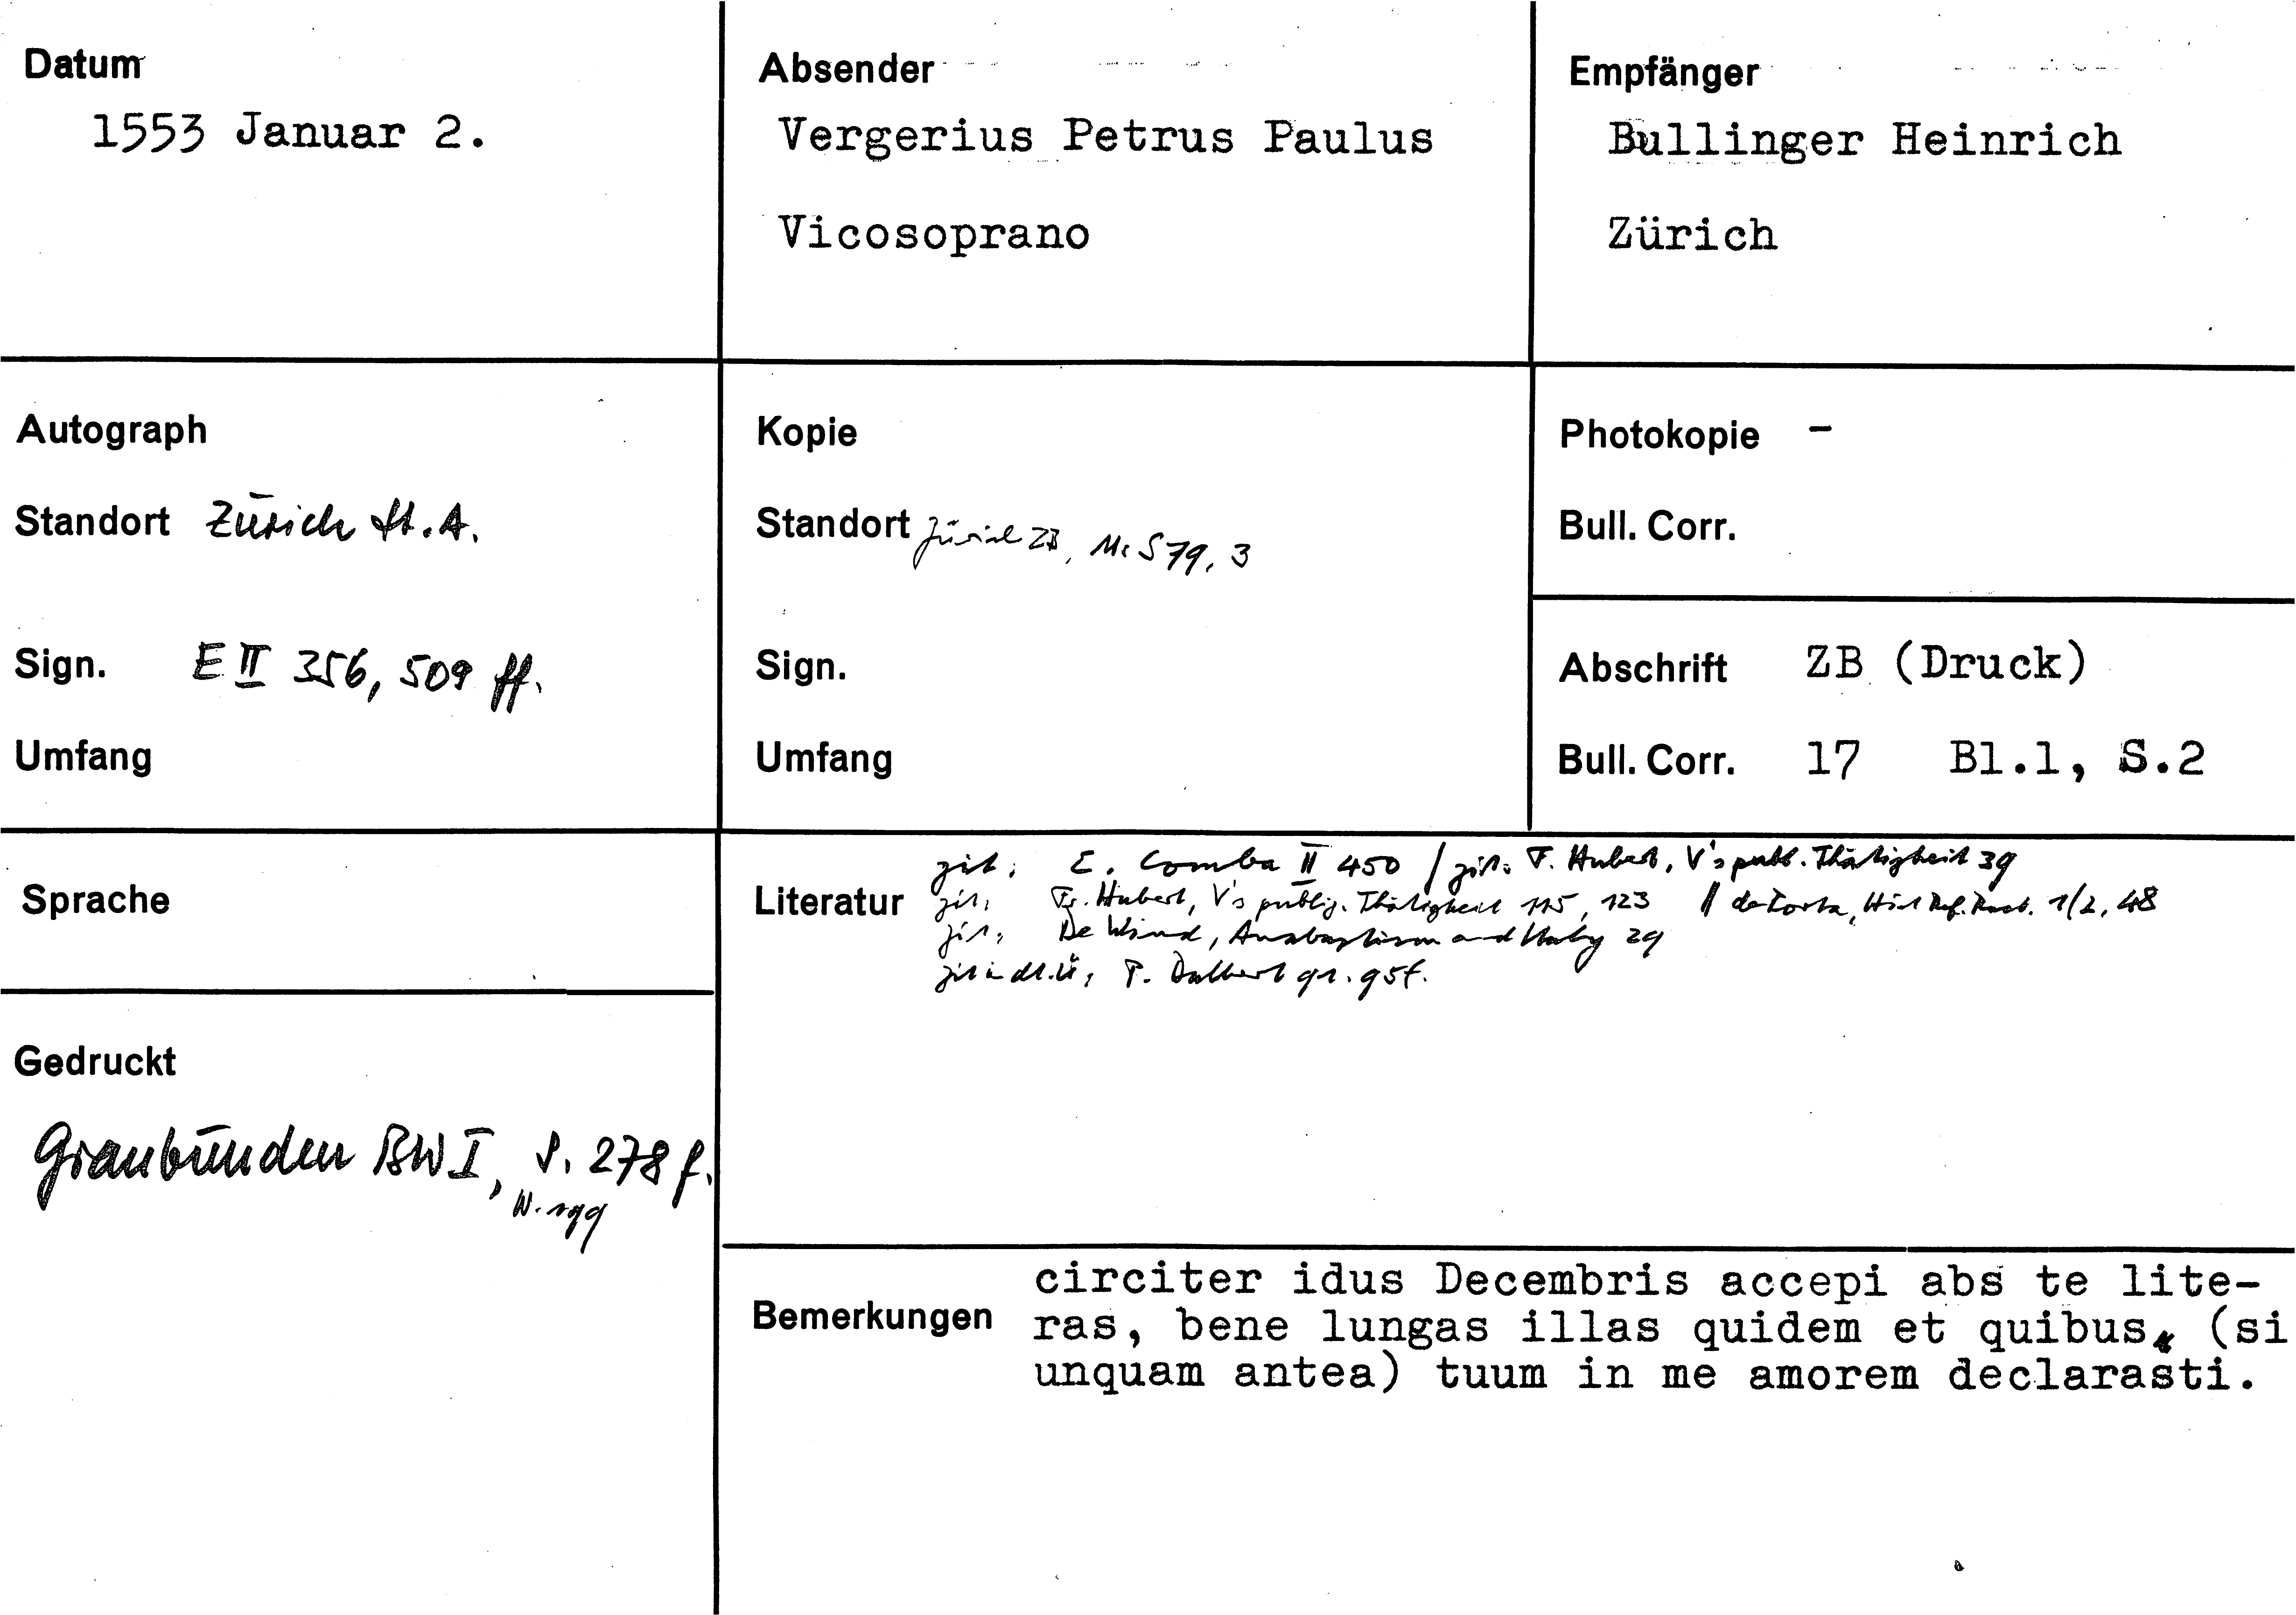 Datum
1553 Januar 2.
Absender
Vergerius Petrus Paulus
Vicosoprano
Empfänger
Bullinger Heinrich
Zürich
Autograph
Standort Zürich St.A.
Sign. E II 356, 509 ff.
Umfang
Kopie
Standort Zürich ZB, Ms S 79, 3
Sign.
Umfang
Photokopie -
Bull. Corr.
Abschrift ZB (Druck)
Bull. Corr. 17 Bl.1, S.2
Sprache
Gedruckt
Graubünden BW I, S. 278 f.
N. 199
Literatur
zit: E. Comba II 450 / zit: F. Hubert, V's publ. Thätigkeit 39
zit: Fr. Hubert, V's publiz. Thätigkeit 115, 123 // de Porta, Hist Ref. Raet. 1/2, 48
zit: De Wind, Anabaptism and Italy 29
zit in dt.Ü: P. Dalbert 91. 95f.
Bemerkungen
circiter idus Decembris accepi abs te lite-
ras, bene lungas illas quidem et quibus, (si
unquam antea) tuum in me amorem declarasti.